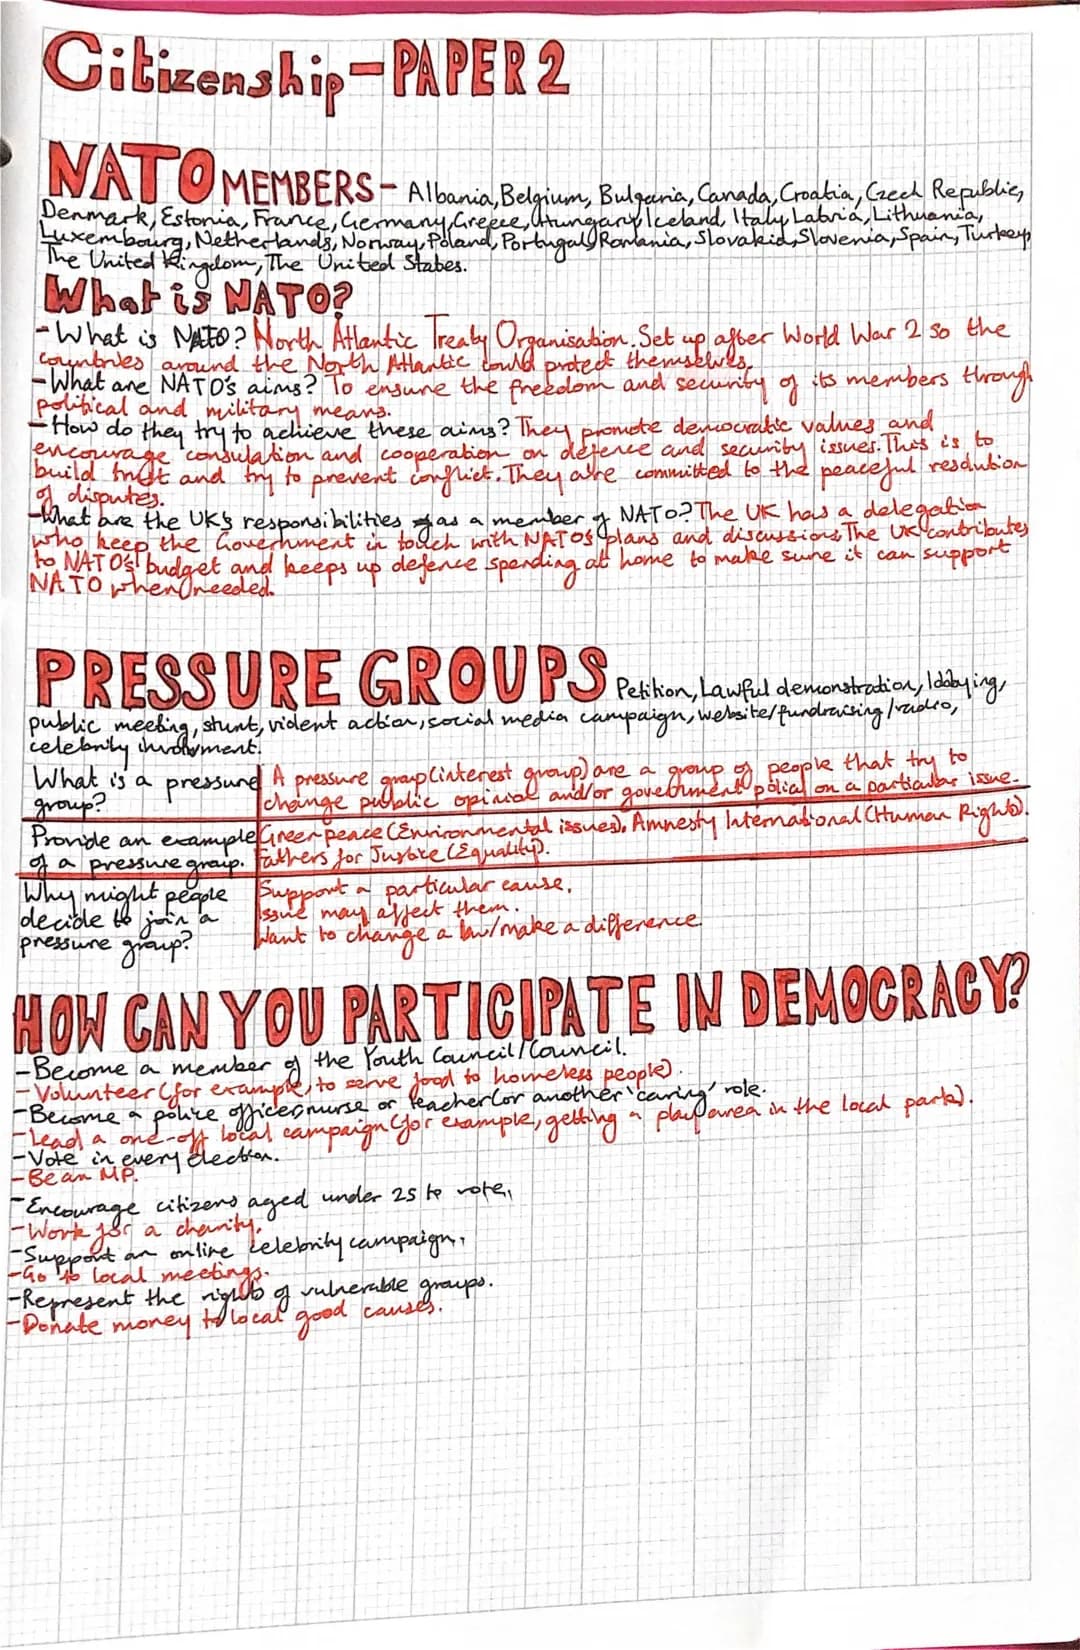 Citizenship-PAPER 2
NATO MEMBERS- Albania, Belgium, Bulgaria, Canada, Croatia, Czech Republic,
Denmark, Estonia, France, Germany, Greece, Hungary, Iceland, Italy, Latvia, Lithuania,
Luxembourg, Netherlands, Norway, Poland, Portugal, Romania, Slovakia, Slovenia, Spain, Turkey,
The United Kingdom, The United States.
What is NATO?
-What is NATO? North Atlantic Treaty Organisation. Set up after World War 2 so the
countries around the North Atlantic could protect themselves.
-What are NATO's aims? To ensure the freedom and security of its members through
political and military means.
-How do they try to achieve these aims? They promote democratic values and
encourage consulation and cooperation on defence and security issues. This is to
build trust and try to prevent conflict. They are committed to the peaceful resolution
of disputes.
-What are the UK's responsibilities as a member of NATO? The UK has a delegation
who keep the Government in touch with NATO's plans and discussions. The UK contributes
to NATO's budget and keeps up defence spending at home to make sure it can support
NATO when needed.
PRESSURE GROUPS Petition, Lawful demonstration, lobbying,
public meeting, stunt, violent action, social media campaign, website/fundraising/radio,
celebrity involvment.
What is a pressure A pressure group (interest group) are a group of people that try to
group? change public opinion and/or government on a particular issue.
Provide an example Greenpeace (Environmental issues), Amnesty International (Human Rights).
of a pressure group. Fathers for Justice (Equality).
Why might people Support a particular cause,
decide to join a Issue may affect them.
pressure group? Want to change a law/make a difference.
HOW CAN YOU PARTICIPATE IN DEMOCRACY?
-Become a member of the Youth Council/Council.
-Volunteer (for example, to serve food to homeless people).
-Become a police officer, nurse or teacher (or another 'caring' role.
-Lead a one-off local campaign (for example, getting a play area in the local park).
-Vote in every election.
-Be an MP.
-Encourage citizens aged under 25 to vote.
-Work for a charity.
-Support an online celebrity campaign.
-Go to local meetings.
-Represent the rights of vulnerable groups.
-Donate money to local good causes.